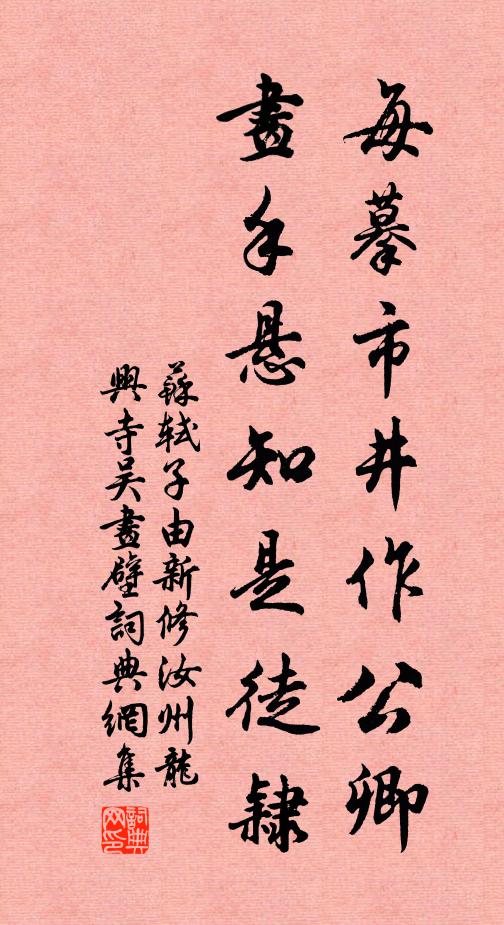 每摹市井作公卿
畫手悬知是徒隸
蘇軾子由新修汝州龍
興寺吳畫壁詞典網集
詞典
网印